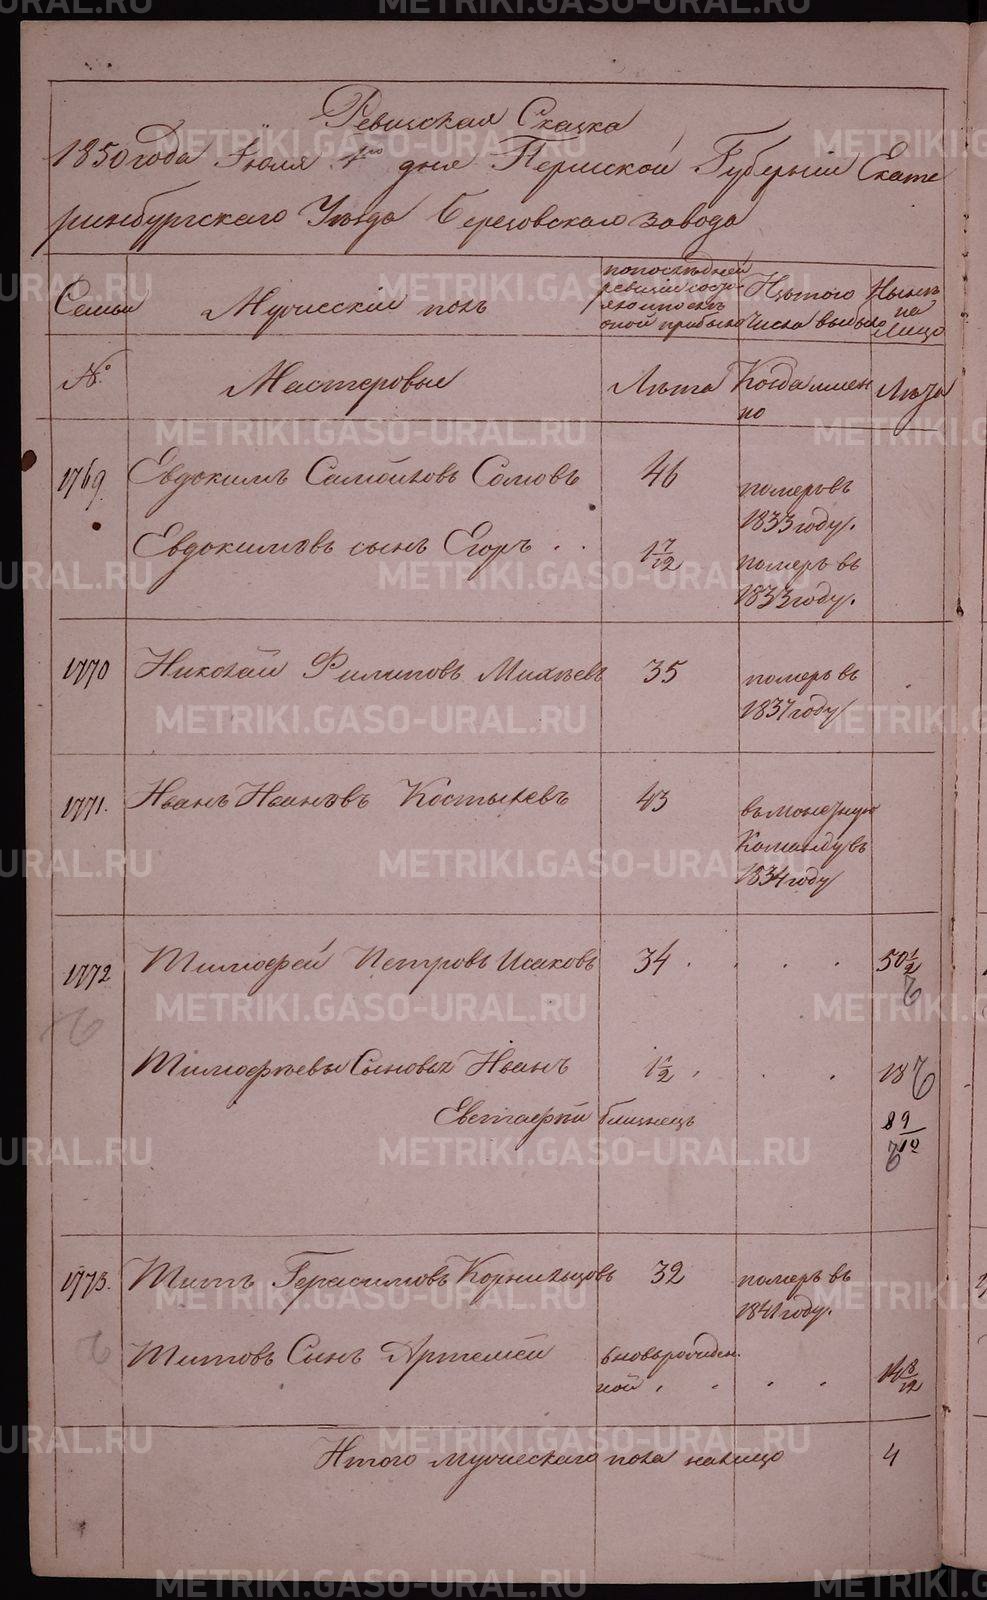 Ревизская Сказка
1850 года Іюля 4го дня Пермской Губерніи Екате
ринбургскаго Уѣзда Березовскаго завода
Семьи
Мужескій полъ
по последней
ревизіи состо
яло и после
оной прибыло
Изъ того
числа выбыло
Нынѣ
на
Лицо
№
Мастеровые
Лѣта
Когда имен
но
Лѣта
1769.
Евдокимъ Самойловъ Сомовъ
46
померъ въ
1833 году.
Евдокимовъ сынъ Егоръ . .
1 7/12
померъ въ
1833 году.
1770
Николай Филиповъ Михѣевъ
35
померъ въ
1837 году
1771.
Иванъ Ивановъ Костылевъ
43
въ монетную
Команду въ
1834 году
1772
Тимофей Петровъ Исаковъ
34 . . . .
50 1/2
Тимофѣевы Сыновья Иванъ
1 1/2 . . .
18
Евстафій близнецъ
8 9/10
1773.
Титъ Герасимовъ Корнильцовъ
32
померъ въ
1841 году.
Титовъ Сынъ Артемей
вновьрожден.
ной . . . .
14 8/12
Итого мужескаго пола налицо
4
METRIKI.GASO-URAL.RU